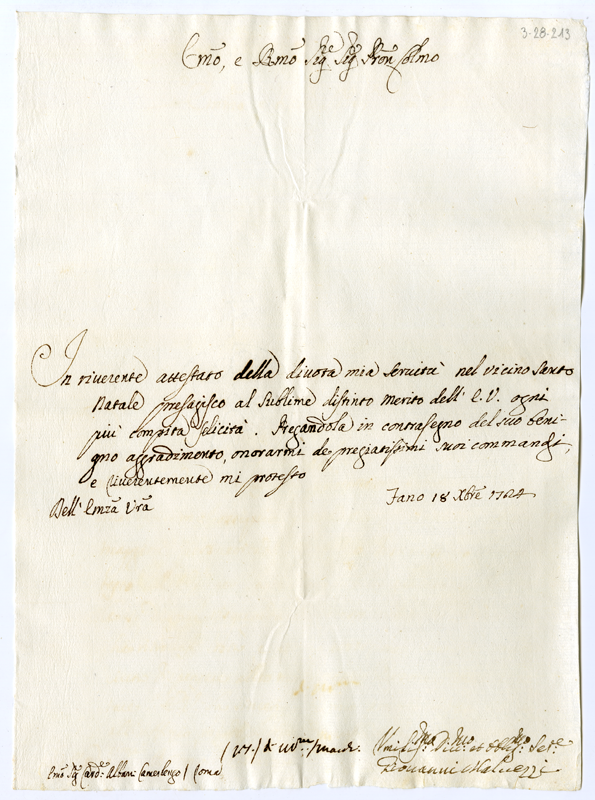 3-28-213
Emo, e Rmo Sigre Sigr Pron Colmo
In riverente attestato della divota mia servitù nel vicino Santo
Natale presagisco al Sublime distinto merito dell' E. V. ogni
più compita felicità. Pregandola in contrasegno del suo beni-
gno aggradimento, onorarmi de pregiatissimi suoi commandi,
e riverentemente mi protesto
Dell' Emza Vra
Fano 18 Xbre 1724
Umilissmo Divmo et Obligmo Sere
Giovanni Malvezzi
Emo Sigr Cardl Albani Camerlengo / Roma